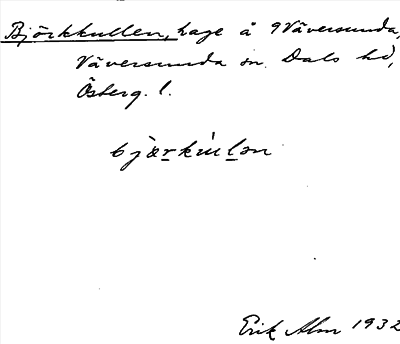 Björkkullen, hage å 9 Väversunda,
Väversunda sn. Dals hd,
Österg. l.
bjærkùlən
Erik Alm 1932